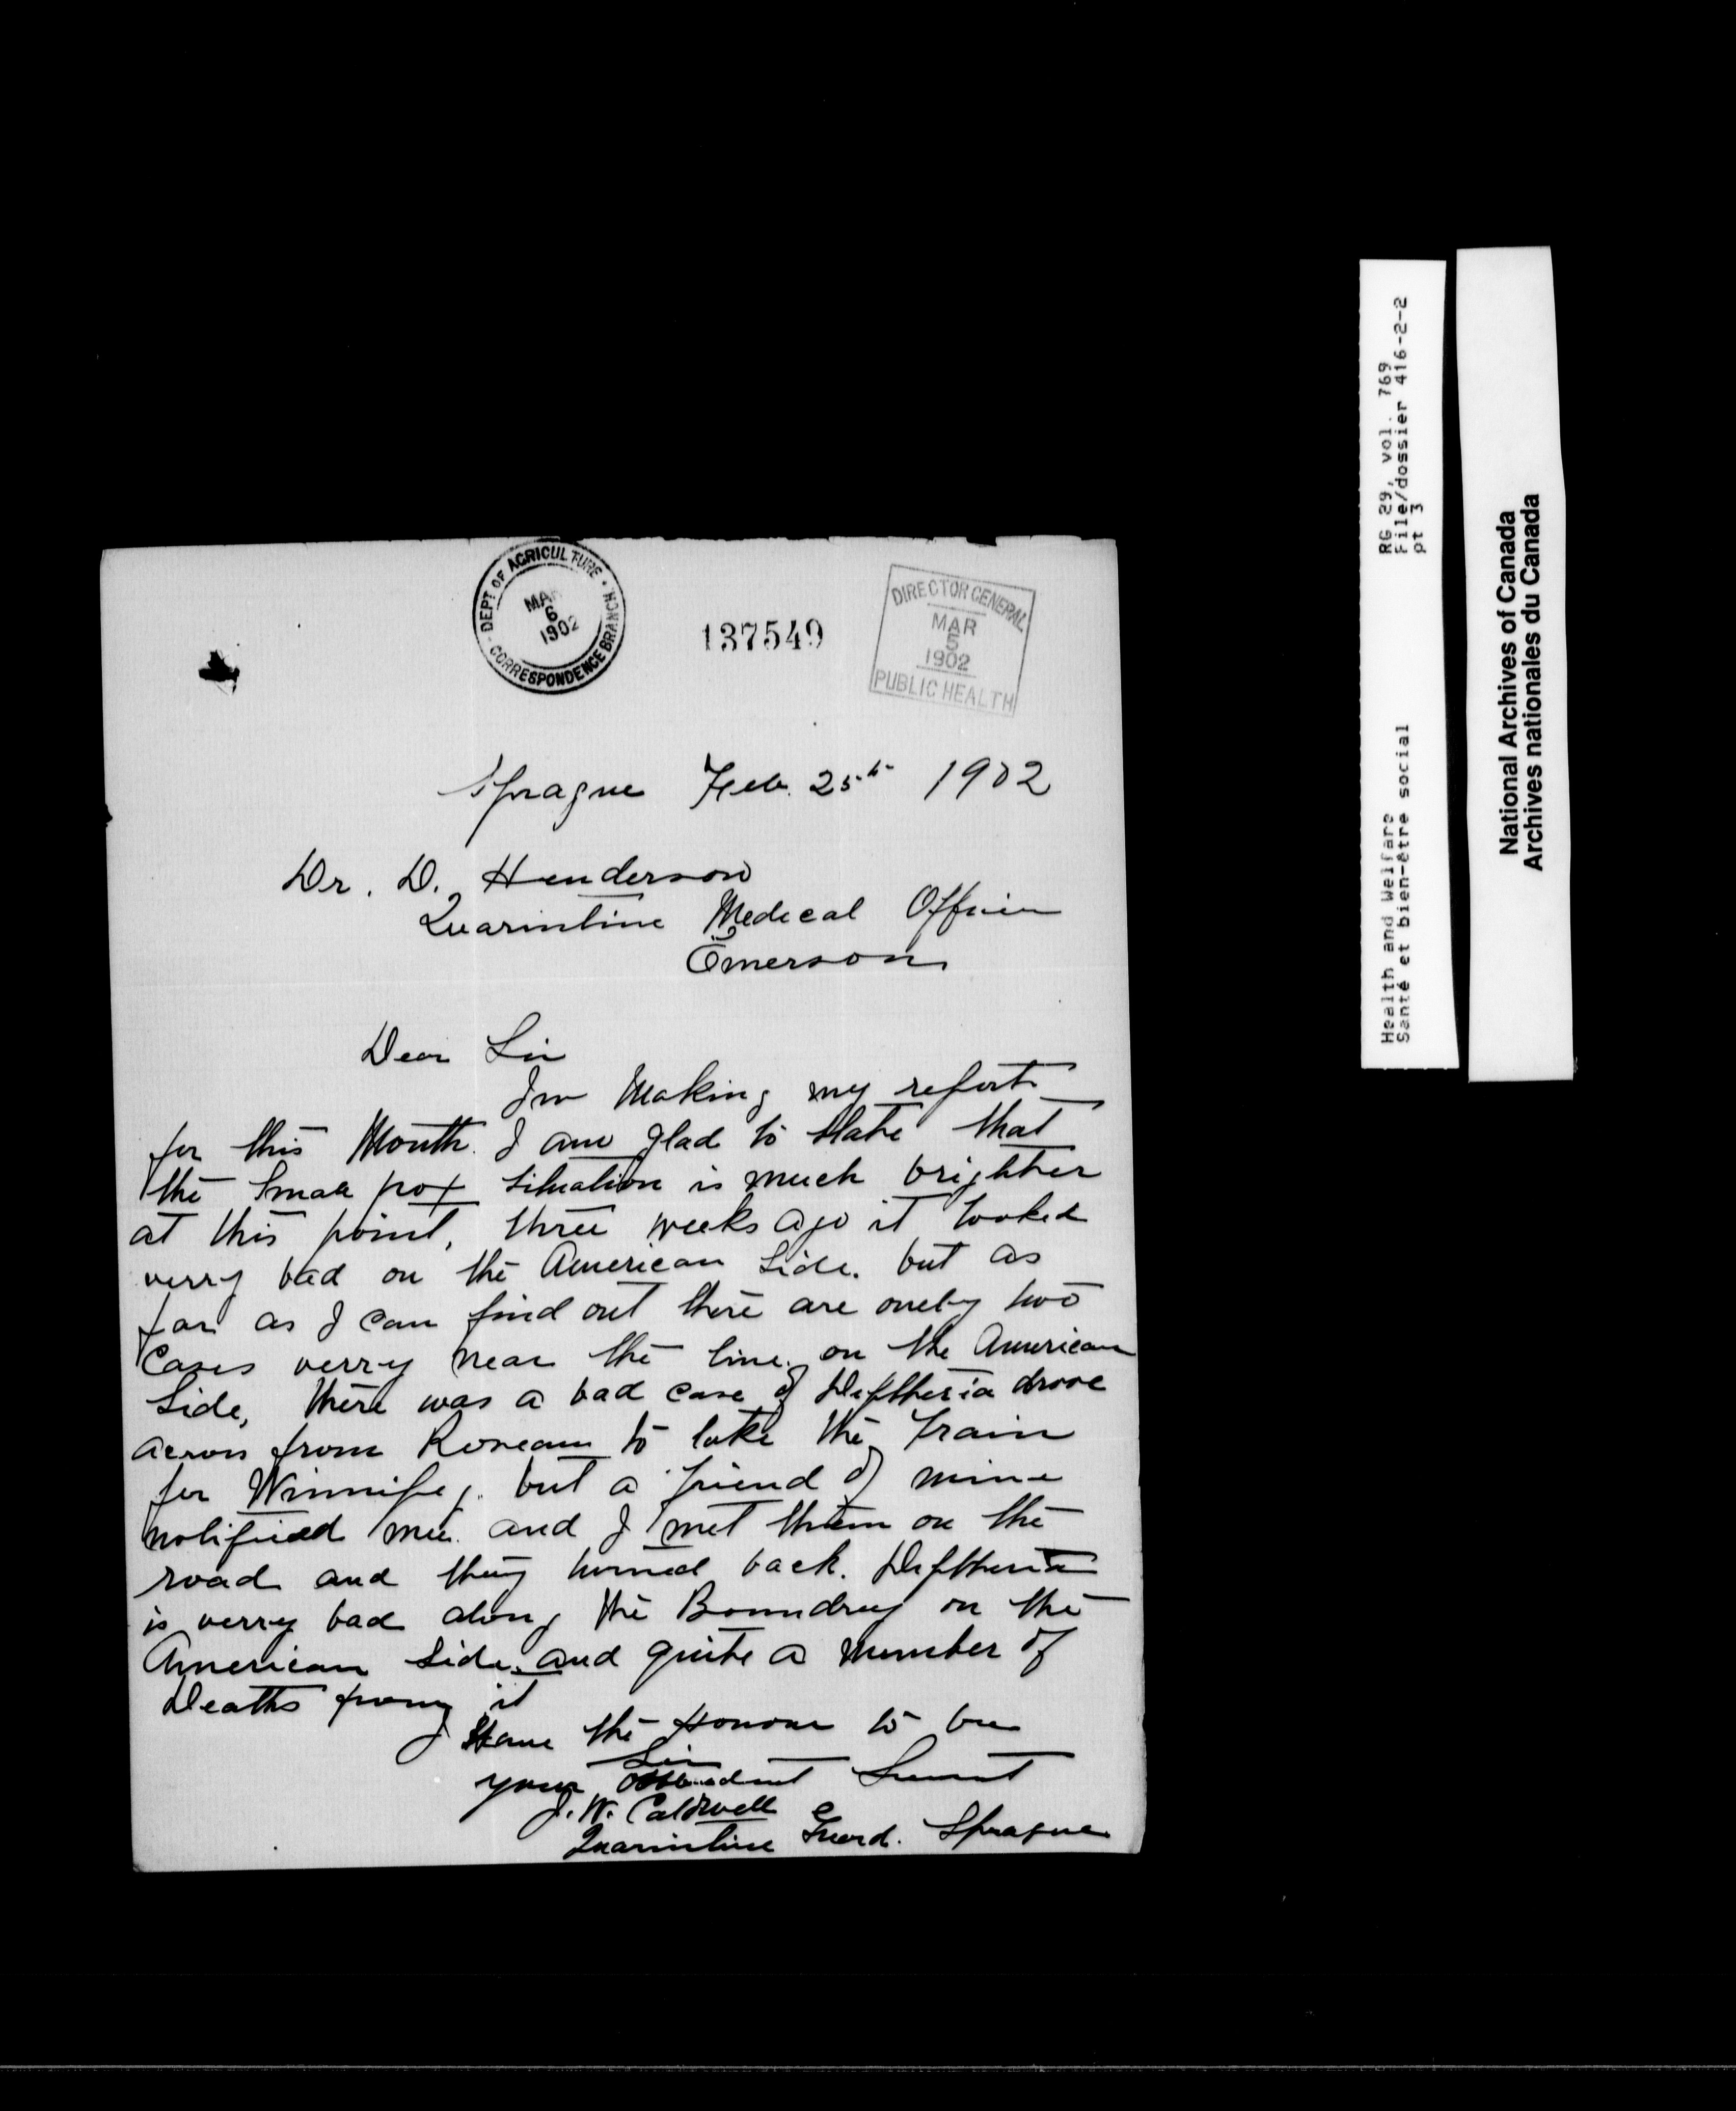 DEPT OF AGRICULTURE
MAR
6
1902
CORRESPONDENCE BRANCH
137549
DIRECTOR GENERAL
MAR
5
1902
PUBLIC HEALTH
Sprague Feb. 25th 1902
Dr. D. Henderson
Quarintine Medical Officer
Emerson
Dear Sir
In Making my report
for this Month I am glad to state that
the Small pox situation is much brighter
at this point, three weeks ago it looked
verry bad on the American Side. but as
far as I can find out there are onely two
Cases verry near the line. on the American
Side, there was a bad case of Deptheria drove
across from Roseau to take the Train
for Winnipeg. but a friend of mine
notifiead mee. and I met them on the
road and they turned back. Deptheria
is verry bad along the Boundry on the
American Side. and quite a number of
Deaths from it
I Have the Honour to bee
Sir
your Servant
J. W. Caldwell
Quarintine Guard. Sprague
RG 29, vol. 769
File/dossier 416-2-2
pt 3
Health and Welfare
Santé et bien-être social
National Archives of Canada
Archives nationales du Canada